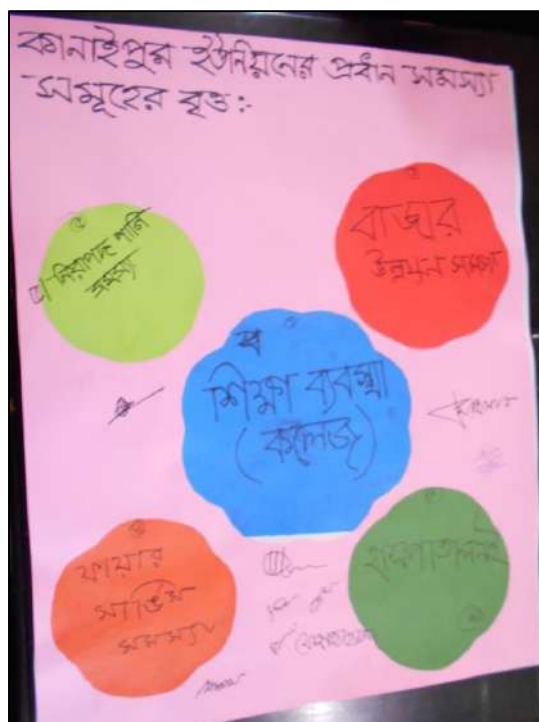 কানাইপুর ইউনিয়নের প্রধান সমস্যা
সমূহের বৃত্ত :-
নিরাপদ পানি
সমস্যা
বাজার
উন্নয়ন সমস্যা
শিক্ষা ব্যবস্থা
(কলেজ)
ফায়ার
সার্ভিস
সমস্যা
হাসপাতাল নাই